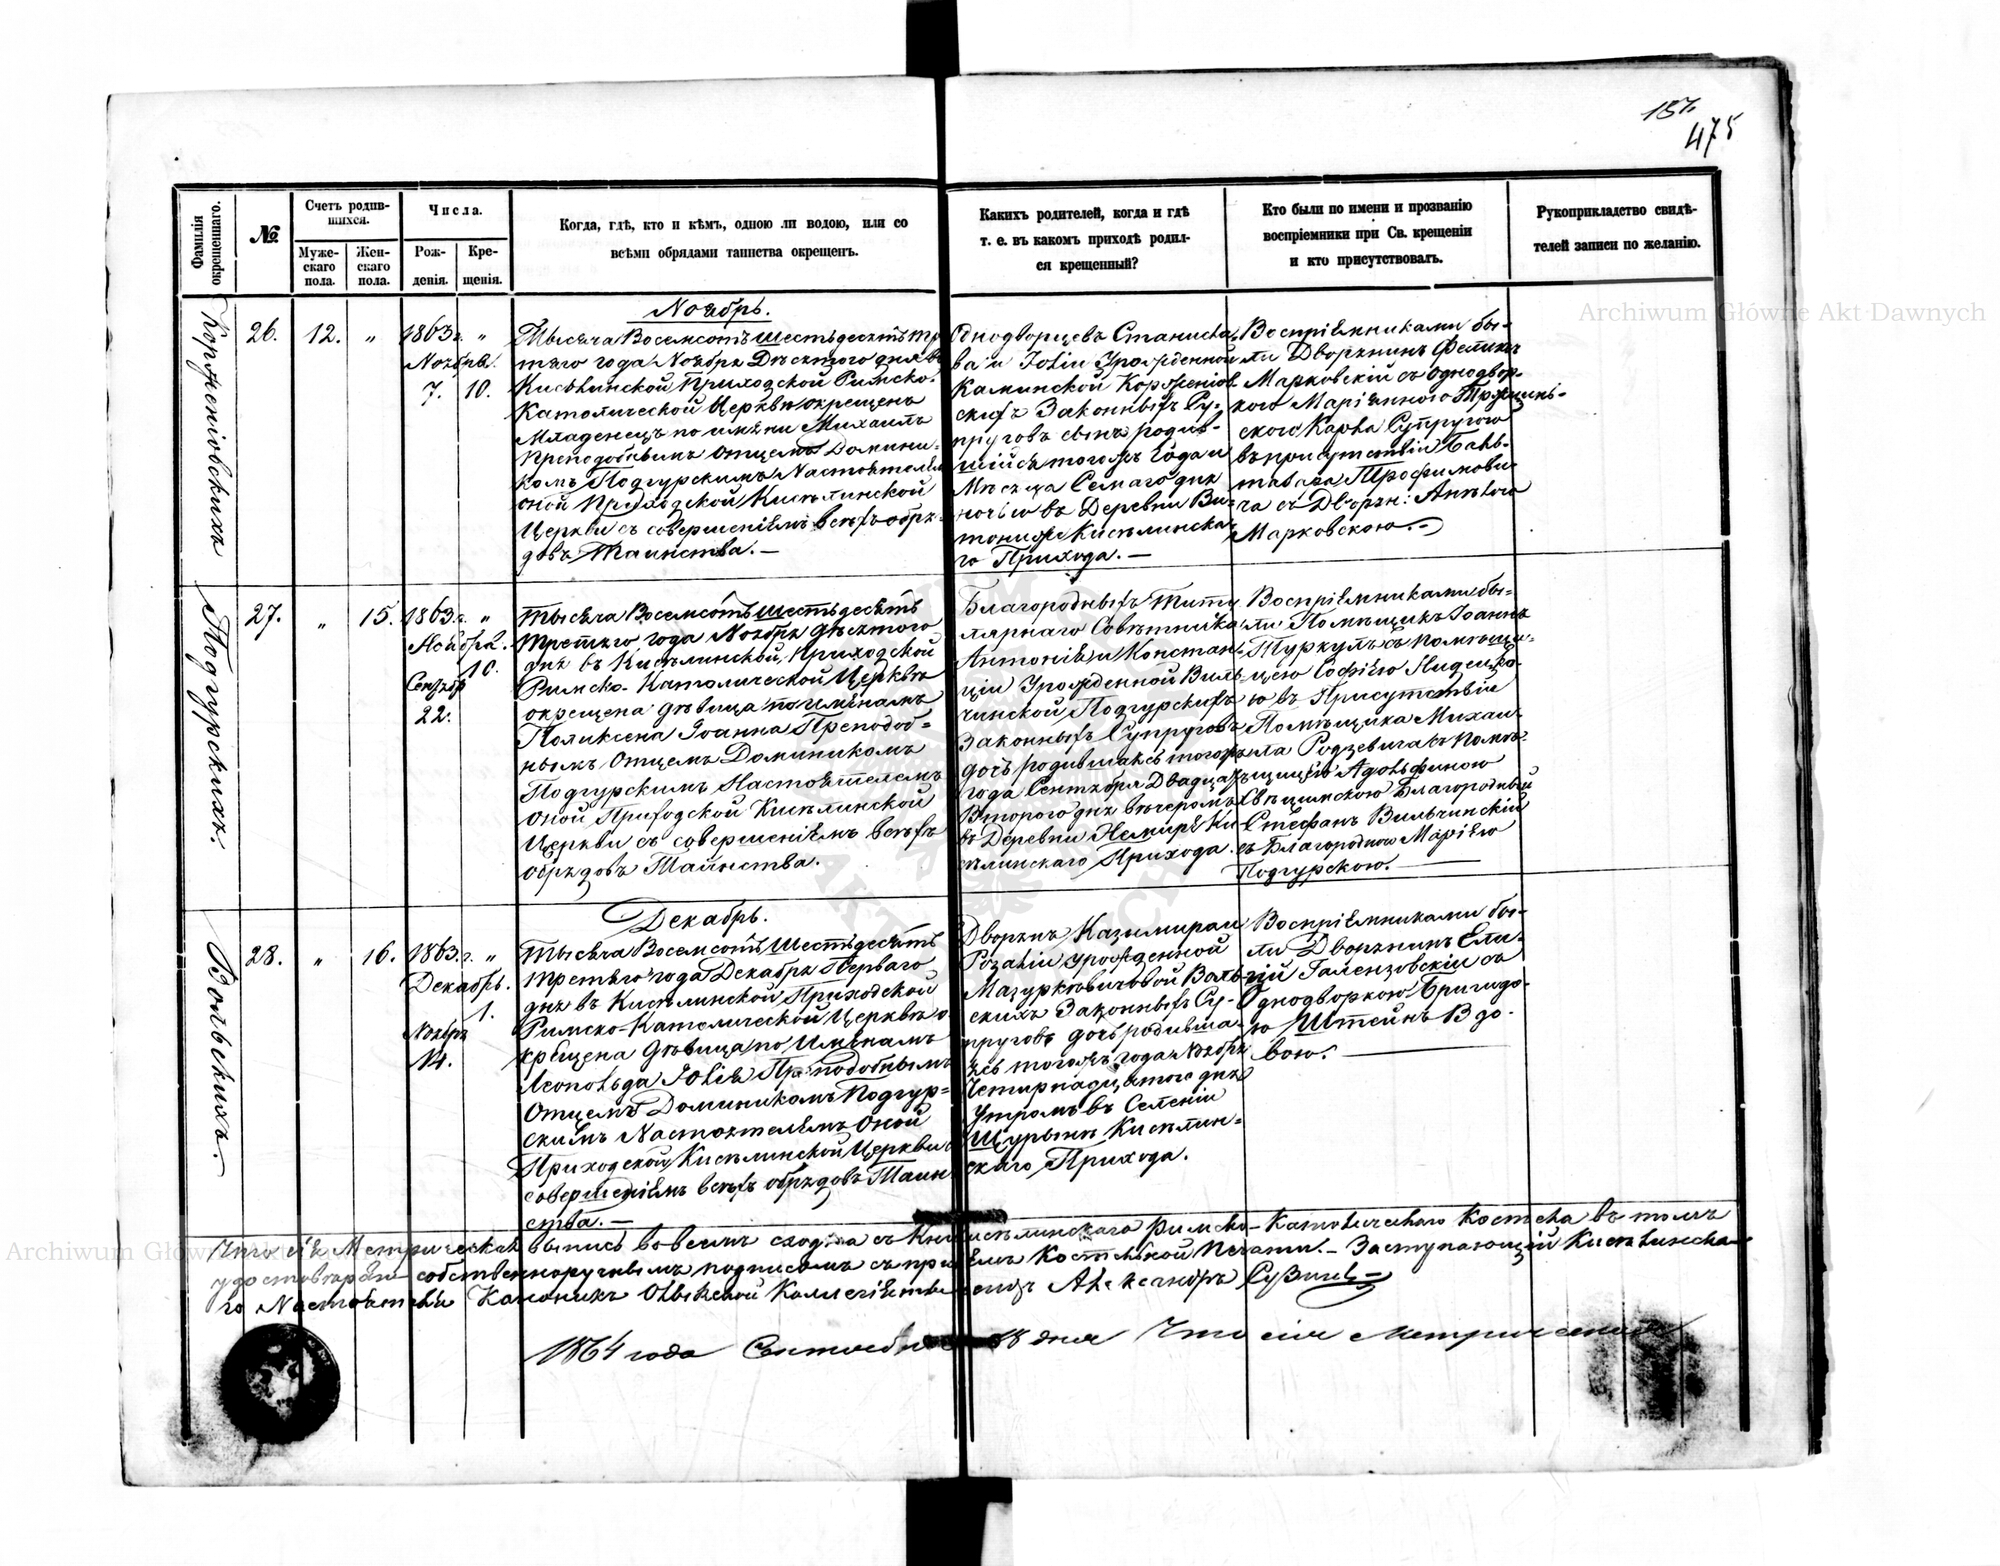 157.
475
Фамилія окрещеннаго.
№
Счетъ родив-
шихся.
Муже-
скаго
пола.
Жен-
скаго
пола.
Числа.
Рож-
денія.
Кре-
щенія.
Когда, гдѣ, кто и кѣмъ, одною ли водою, или со
всѣми обрядами таинства окрещенъ.
Какихъ родителей, когда и гдѣ
т. е. въ какомъ приходѣ родил-
ся крещенный?
Кто были по имени и прозванію
воспріемники при Св. крещеніи
и кто присутствовалъ.
Рукоприкладство свидѣ-
телей записи по желанію.
Archiwum Główne Akt Dawnych
Корженіовскихъ
26.
12.
"
1863 г. "
Ноября.
7. 10.
Ноябрь.
Тысяча Восемсотъ шестьдесятъ тре
тяго года Ноября Десятого дня въ
Киселинской Приходской Римско-
Католической Церкви окрещенъ
Младенецъ по имени Михаилъ
Преподобнымъ Отцемъ Домини-
комъ Подгурскимъ Настоятелем
оной Приходской Киселинской
Церкви съ совершеніемъ всѣхъ обря-
довъ Таинства. —
Однодворцевъ Станисла
ва и Юліи Урожденной
Каминской Корженіов
скихъ Законныхъ Су-
пруговъ сынъ родив-
шійся тогожъ года и
Мѣсяца Семаго дня
ночью въ Деревни Ви-
тониже Киселинска
го Прихода. —
Воспріемниками бы-
ли Дворянинъ Феликсъ
Марковскій съ Однодвор-
кого Маріянного
ского Карла Супругого
въ присутствіи
Трофимови
ча съ Дворян: Анелого
Марковскою. —
Подгурскихъ.
27.
"
15.
1863 г. "
Ноября.
10.
Сентябр
22.
Тысяча Восемсотъ шестьдесятъ
третьяго года Ноября Десятого
дня въ Киселинской Приходской
Римско-Католической Церквѣ
окрещена дѣвица по именамъ
Поликсена Іоанна Преподоб-
нымъ Отцемъ Доминикомъ
Подгурскимъ Настоятелемъ
оной Приходской Киселинской
Церкви съ совершеніемъ всѣхъ
обрядовъ Таинства.
Благородныхъ Титу
лярнаго Совѣтника
Антонія и Констан-
ціи Урожденной Виль
чинской Подгурскихъ
Законныхъ Супруговъ
дочь родившаяся тогожъ
года Сентября Двадцать
Второго дня вечеромъ
въ Деревни Немиря Ки
селинскаго Прихода.
Воспріемниками бы-
ли Помѣщикъ Іоаннъ
Туркулъ съ Помѣщи-
цею Софіею Нидецко-
ю въ Присутствіи
Помѣщика Михаи-
ла Родзевича съ Помѣ-
щицею Адольфиною
Свѣцимскою Благородный
Стефанъ Вильчинскій
съ Благородною Маріею
Подгурскою. —
Вольскихъ. —
28.
"
16.
1863 г. "
Декабрь.
1.
Ноябрь
14.
Декабрь.
Тысяча Восемсотъ Шестьдесятъ
третьяго года Декабря Перваго
дня въ Киселинской Приходской
Римско-Католической Церквѣ о
крещена дѣвица по именамъ
Леопольда Юлія Преподобнымъ
Отцемъ Доминикомъ Подгур-
скимъ Настоятелемъ Оной
Приходской Киселинской Церкви съ
совершеніемъ всѣхъ обрядовъ Таин
ства. —
Дворянъ Казимира и
Розаліи урожденной
Мазуркевичовой Воль
скихъ Законныхъ Су-
пруговъ дочь родивша-
яся тогожъ года Ноября
Четырнадцатого дня
утромъ въ Селеніи
Щурынѣ Киселин-
скаго Прихода.
Воспріемниками бы-
ли Дворянинъ Ели-
гій Галензовскіи съ
Однодворкою Бригидо-
ю Штейнъ Вдо-
вою. —
Archiwum Głó
Что сія Метрическая выпись во всемъ сходна съ Кни Киселинскаго Римско-Католическаго Костела въ томъ
удостовѣряю собственноручнымъ подписомъ съ при емъ Костельной Печати. — Заступающій Киселинска
го Настоятеля Каноникъ Олыкской Коллегіяты Ксендзъ Александръ
1864 года 18 дня Что сія Метрическая